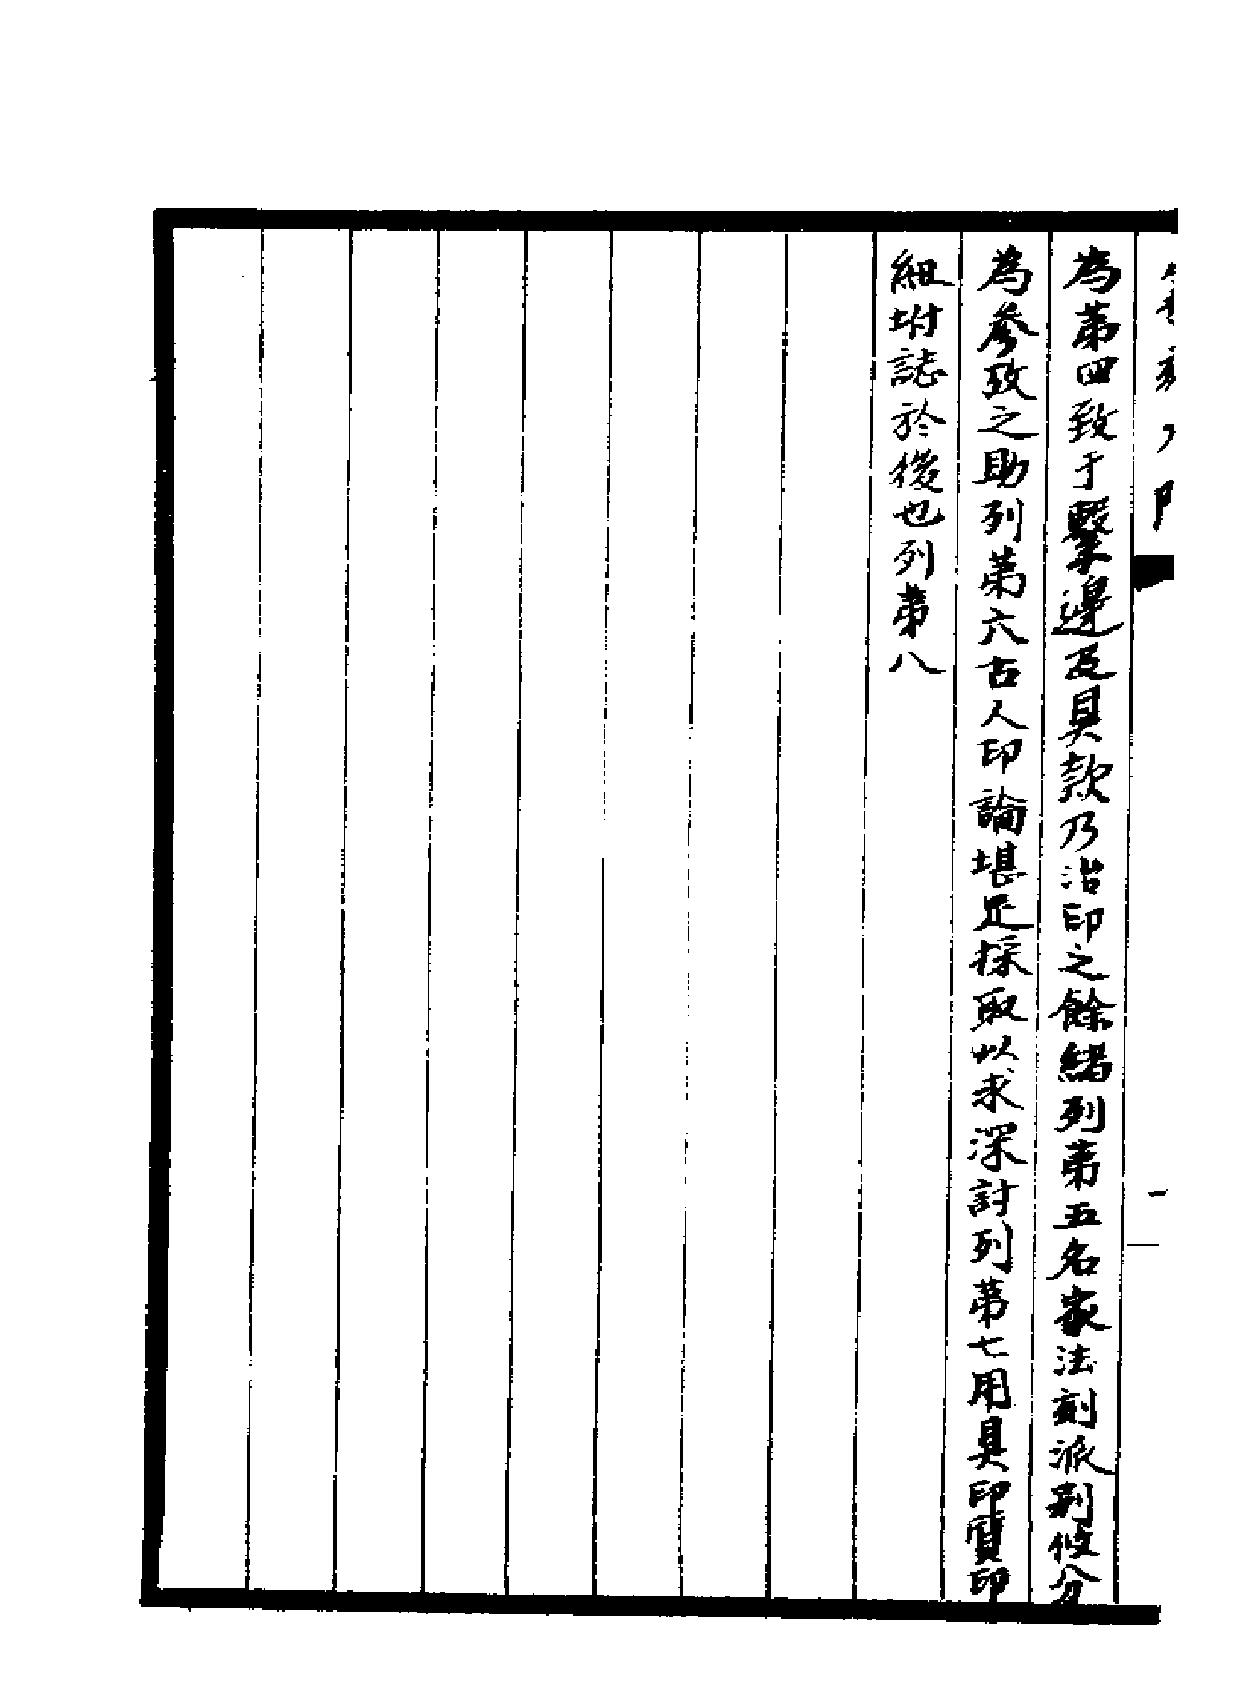 為第四致于擊邊及具款乃治印之餘緒列第五名家法刻派別攸分
為參攷之助列第六古人印論堪足採取以求深討列第七用具印質印
紐坿誌於後也列第八